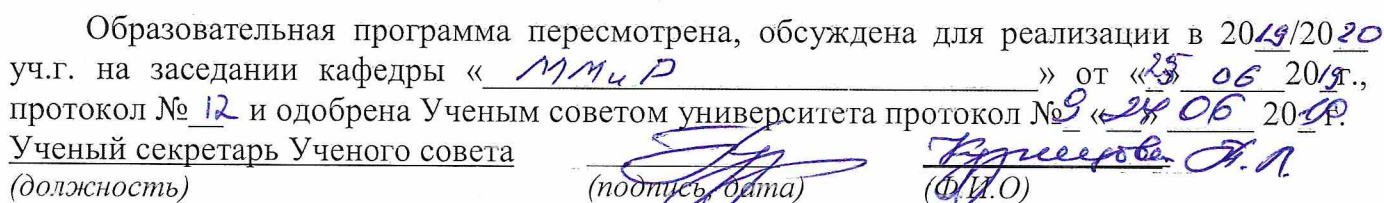 Образовательная программа пересмотрена, обсуждена для реализации в 2019/2020
уч.г. на заседании кафедры « ММиР » от «25» 06 2019г.,
протокол № 12 и одобрена Ученым советом университета протокол №9 «» 06 2019г.
Ученый секретарь Ученого совета
(должность) (подпись, дата) (Ф.И.О)